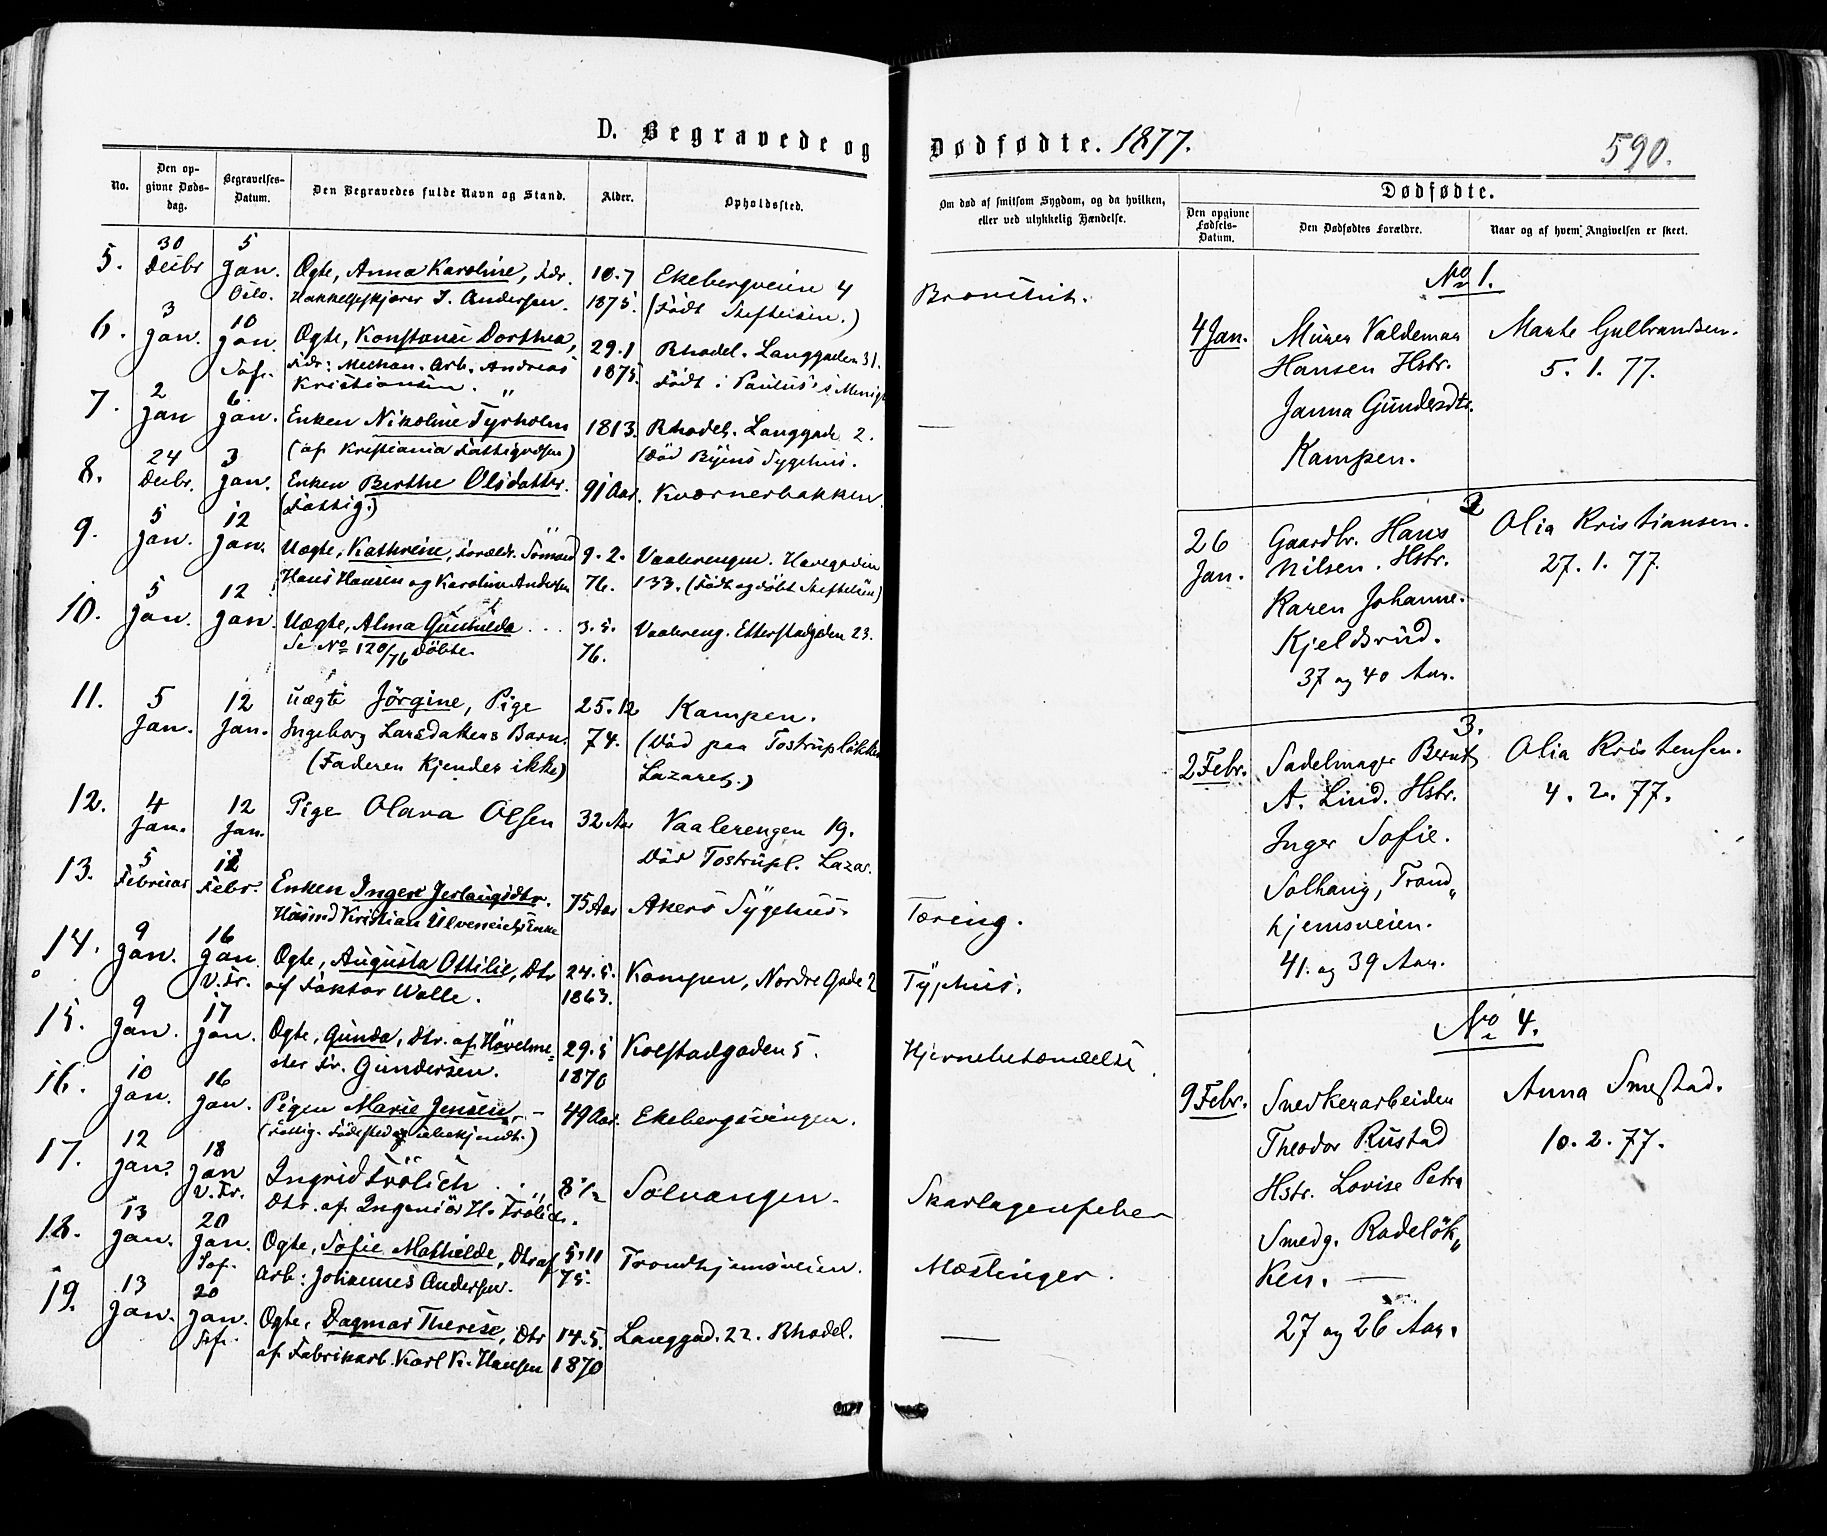 D. Begravede og Dødfødte. 1877.
590.
No.
Den opgivne Dødsdag.
Begravelses-Datum.
Den Begravedes fulde Navn og Stand.
Alder.
Opholdssted.
Om død af smitsom Sygdom, og da hvilken, eller ved ulykkelig Hændelse.
Dødfødte.
Den opgivne Fødsels-Datum.
Den Dødfødtes Forældre.
Naar og af hvem Angivelsen er skeet.
5. 30 Decbr 5 Jan. Oslo. Ægte, Anna Karoline, Fdr. 10.7 1875. Ekebergveien 4
J. Andersen. (Født Stiftelsen.)
6. 3 Jan. 10 Jan. Sof. Ægte, Konstanse Dorthea, 29.1 1875. Rhodel. Langgaden 31.
Fdr: Mechan. Arb. Andreas Født i Paulus's Menigh
Kristiansen.
7. 2 Jan 6 Jan. Enken Nikoline Tyrholm 1813. Rhodel. Langgade 2. —
(af Kristiania Fattigvæsen) (Død Byens Sygehus.
8. 24 Decbr. 3 Jan. Enken Berthe Olsdatter. 91 Aar. Kværnerbakken
(Fattig.)
9. 5 Jan. 12 Jan. Uægte, Kathrine, Foræld. Sömand 9.2. 76. Vaalerengen. Havegaden
Hans Hansen og Karoline Andersen 133. (Født og døbt Stiftelsen)
10. 5 Jan. 12 Jan. Uægte, Alma Gunhilda 3.5. 76. Vaalereng. Etterstadgaden 23.
Se No 120/76 Döbte.
11. 5 Jan. 12 Jan. uægte Jörgine, Pige 25.12 74. Kampen.
Ingeborg Larsdatters Barn. (Död paa Tostrupløkken
(Faderen kjendes ikke) Lazareth.)
12. 4 Jan. 12 Jan. Pige Olava Olsen 32 Aar Vaalerengen 19.
Död Tostrupl. Lazar.
13. 5 Februar 12 Febr. Enken Ingeri 75 Aar Akers Sygehus. Tæring.
14. 9 Jan. 16 Jan. V. Fr. Ægte, Augusta Ottilie, Dtr 24.5. 1863. Kampen, Nordre Gade 2 Typhus.
af Faktor Wolle.
15. 9 Jan. 17 Jan. Ægte, Gunda, Dtr. af Hövelme- 29.5 1870 Kolstadgaden 5. Hjernebetændelse.
ster Fr. Gundersen.
16. 10 Jan. 16 Jan. Pigen Marie Jensen, — 49 Aar. Ekebergsvingen.
(Fattig. Fødested ubekjendt.)
17. 12 Jan. 18 Jan V. Fr. Ingrid Frölich 8 1/2 Solvangen. Skarlagensfeber
Dtr. af Ingeniör H. Frölich.
18. 13 Jan. 20 Jan. Sof. Ægte, Sofie Mathilde, Dtr af 5.11 75. Trondhjemsveien. Mæslinger.
Arb: Johannes Andersen.
19. 13 Jan. 20 Jan. Sof. Ægte, Dagmar Therese, Dtr 14.5. 1870 Langgad. 22. Rhodel. —
af Fabrikarb. Karl K. Hansen
Bronchit.
No 1.
4 Jan. Murer Valdemar
Hansen Hstr.
Janna Gundersdtr.
Kampen.
Marte Gulbrandsen.
5. 1. 77.
2
26 Jan. Gaardbr. Hans
Nilsen. Hstr.
Karen Johanne.
Kjeldsrud.
37 og 40 Aar.
Olia Kristiansen.
27. 1. 77.
3.
2 Febr. Sadelmager Bernt
A. Lind. Hstr.
Inger Sofie.
Solhaug, Trond„
hjemsveien.
41. og 39 Aar.
Olia Kristensen.
4. 2. 77.
No 4.
9 Febr. Snedkerarbeider
Theodor Rustad
Hstr. Lovise Petra
Smedg. Rodelök„
ken. —
27 og 26 Aar.
Anna Smestad.
10. 2. 77.